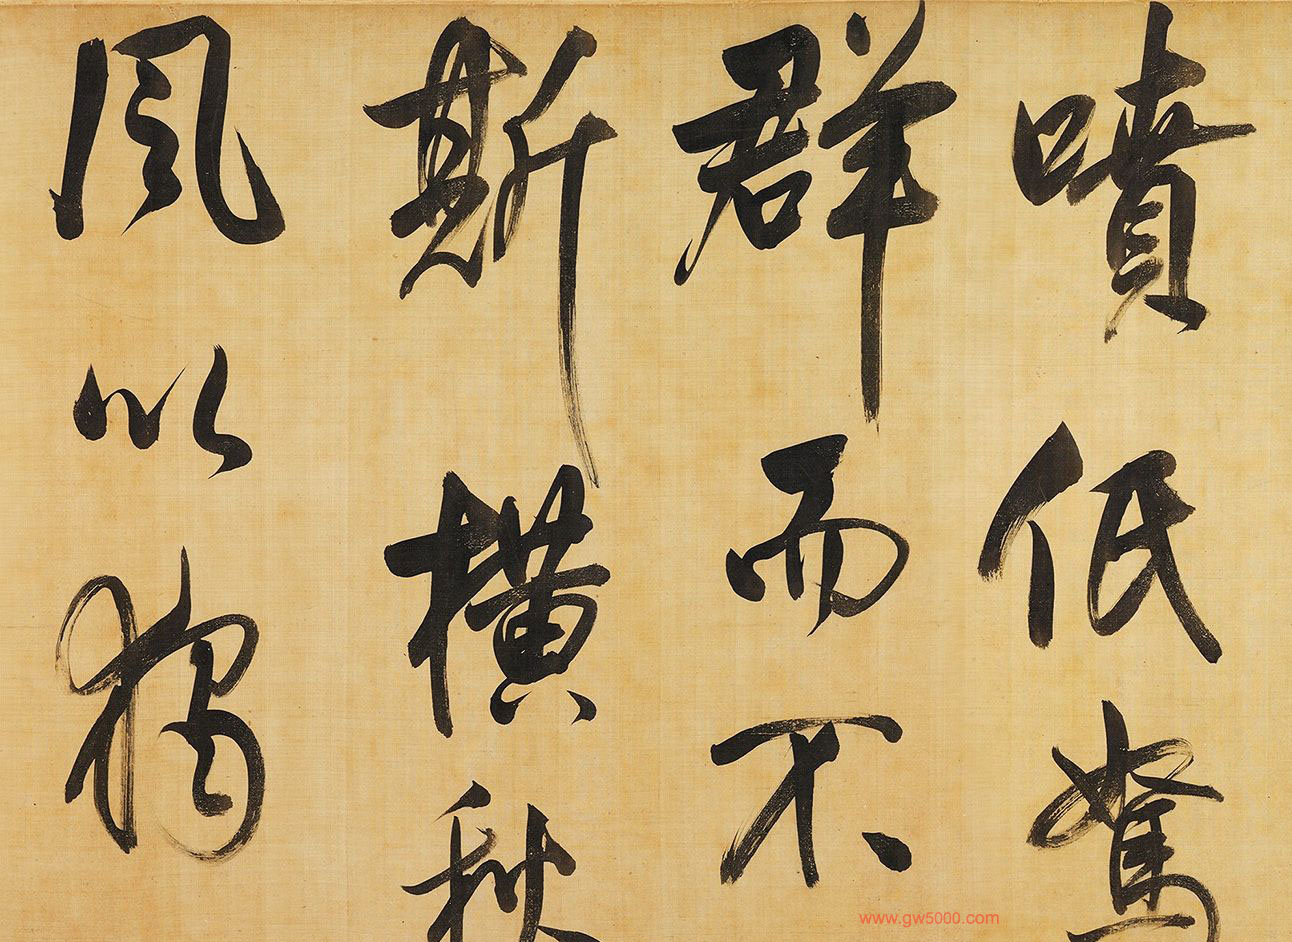 噴低駑
群而不
斯橫秋
風以獨
www.gw5000.com